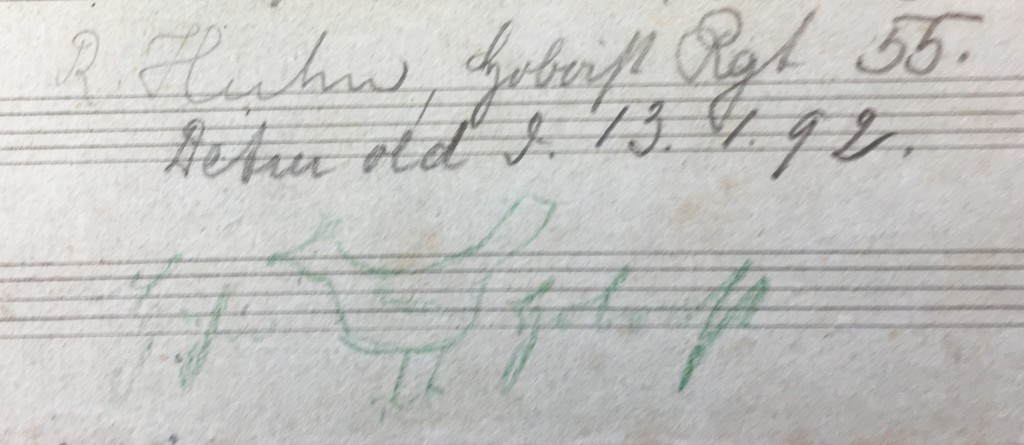 R. Huhn, Hoboist Rgt 55.
Detmold d. 13. 1. 92.
Hoboist